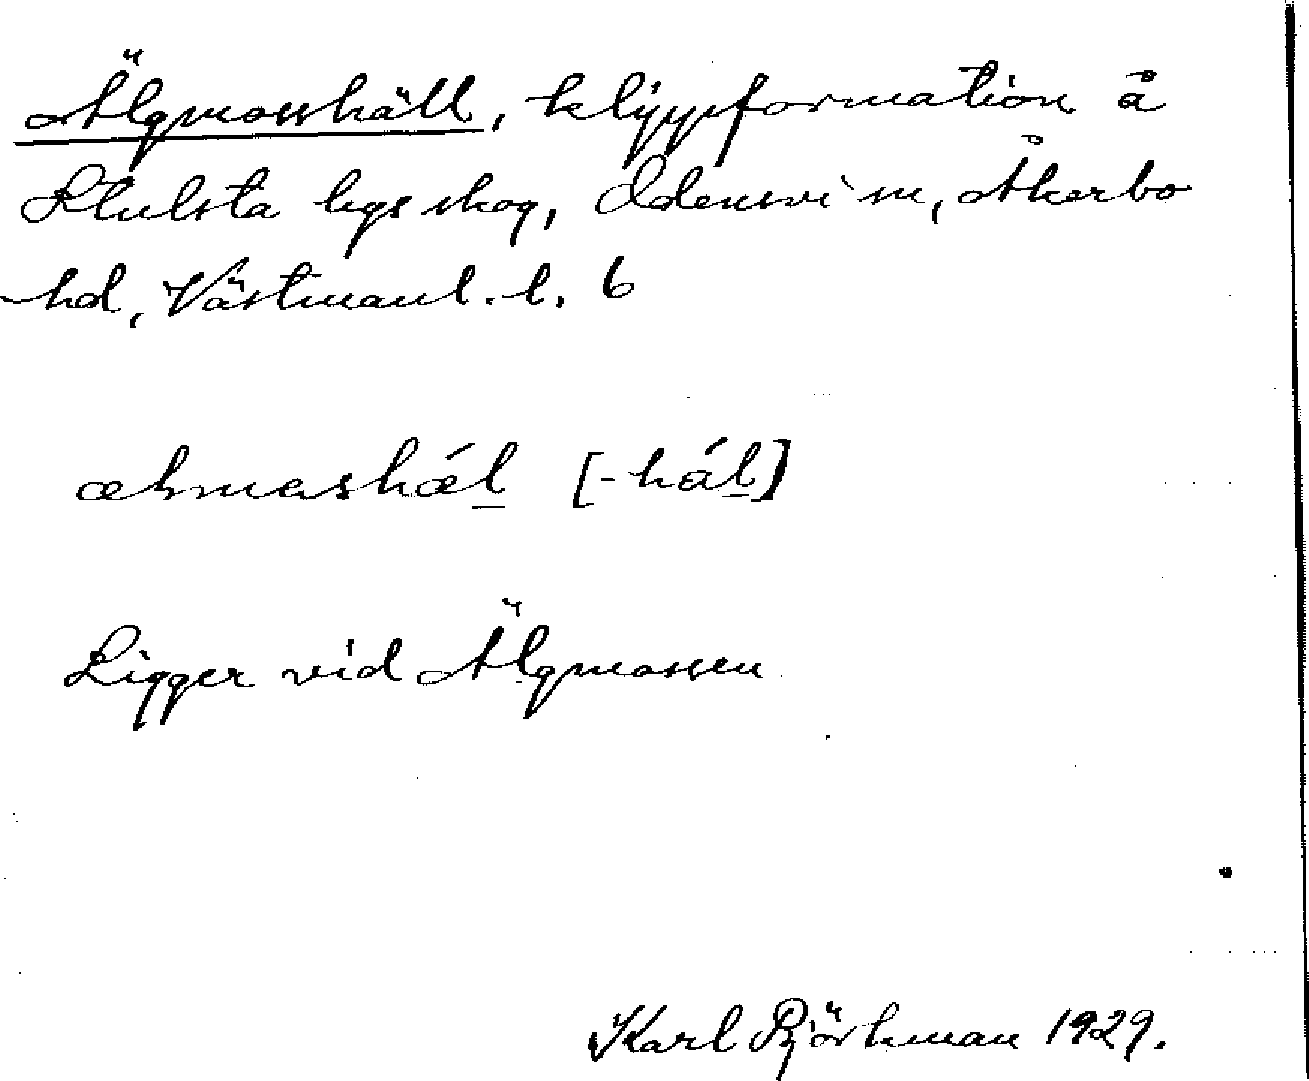 Älgmosshäll, klippformation å
bys skog, Odensvi sn, Åkerbo
hd, Västmanl. l. 6
[-hál]
Ligger vid Älgmossen
Karl Björkman 1929.